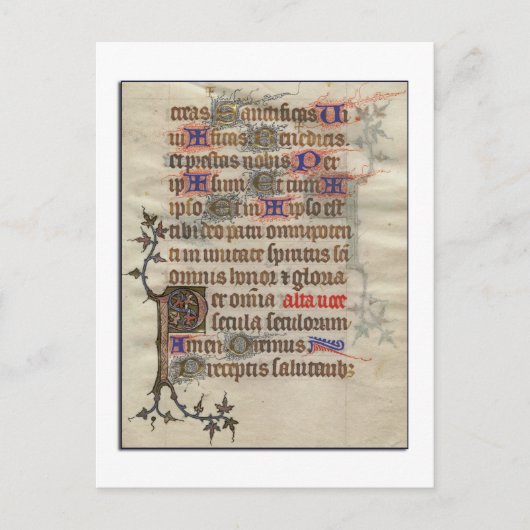 creas Sanctificas Ui
uificas Benedicis.
et prestas nobis Per
ipsum Et cum i
ipso Et in ipso est
tibi deo patri omnipoten
ti in unitate spiritus sci
omnis honor & gloria
Per omia alta uoce
secula seculorum
Amen Oremus
Preceptis salutarib;